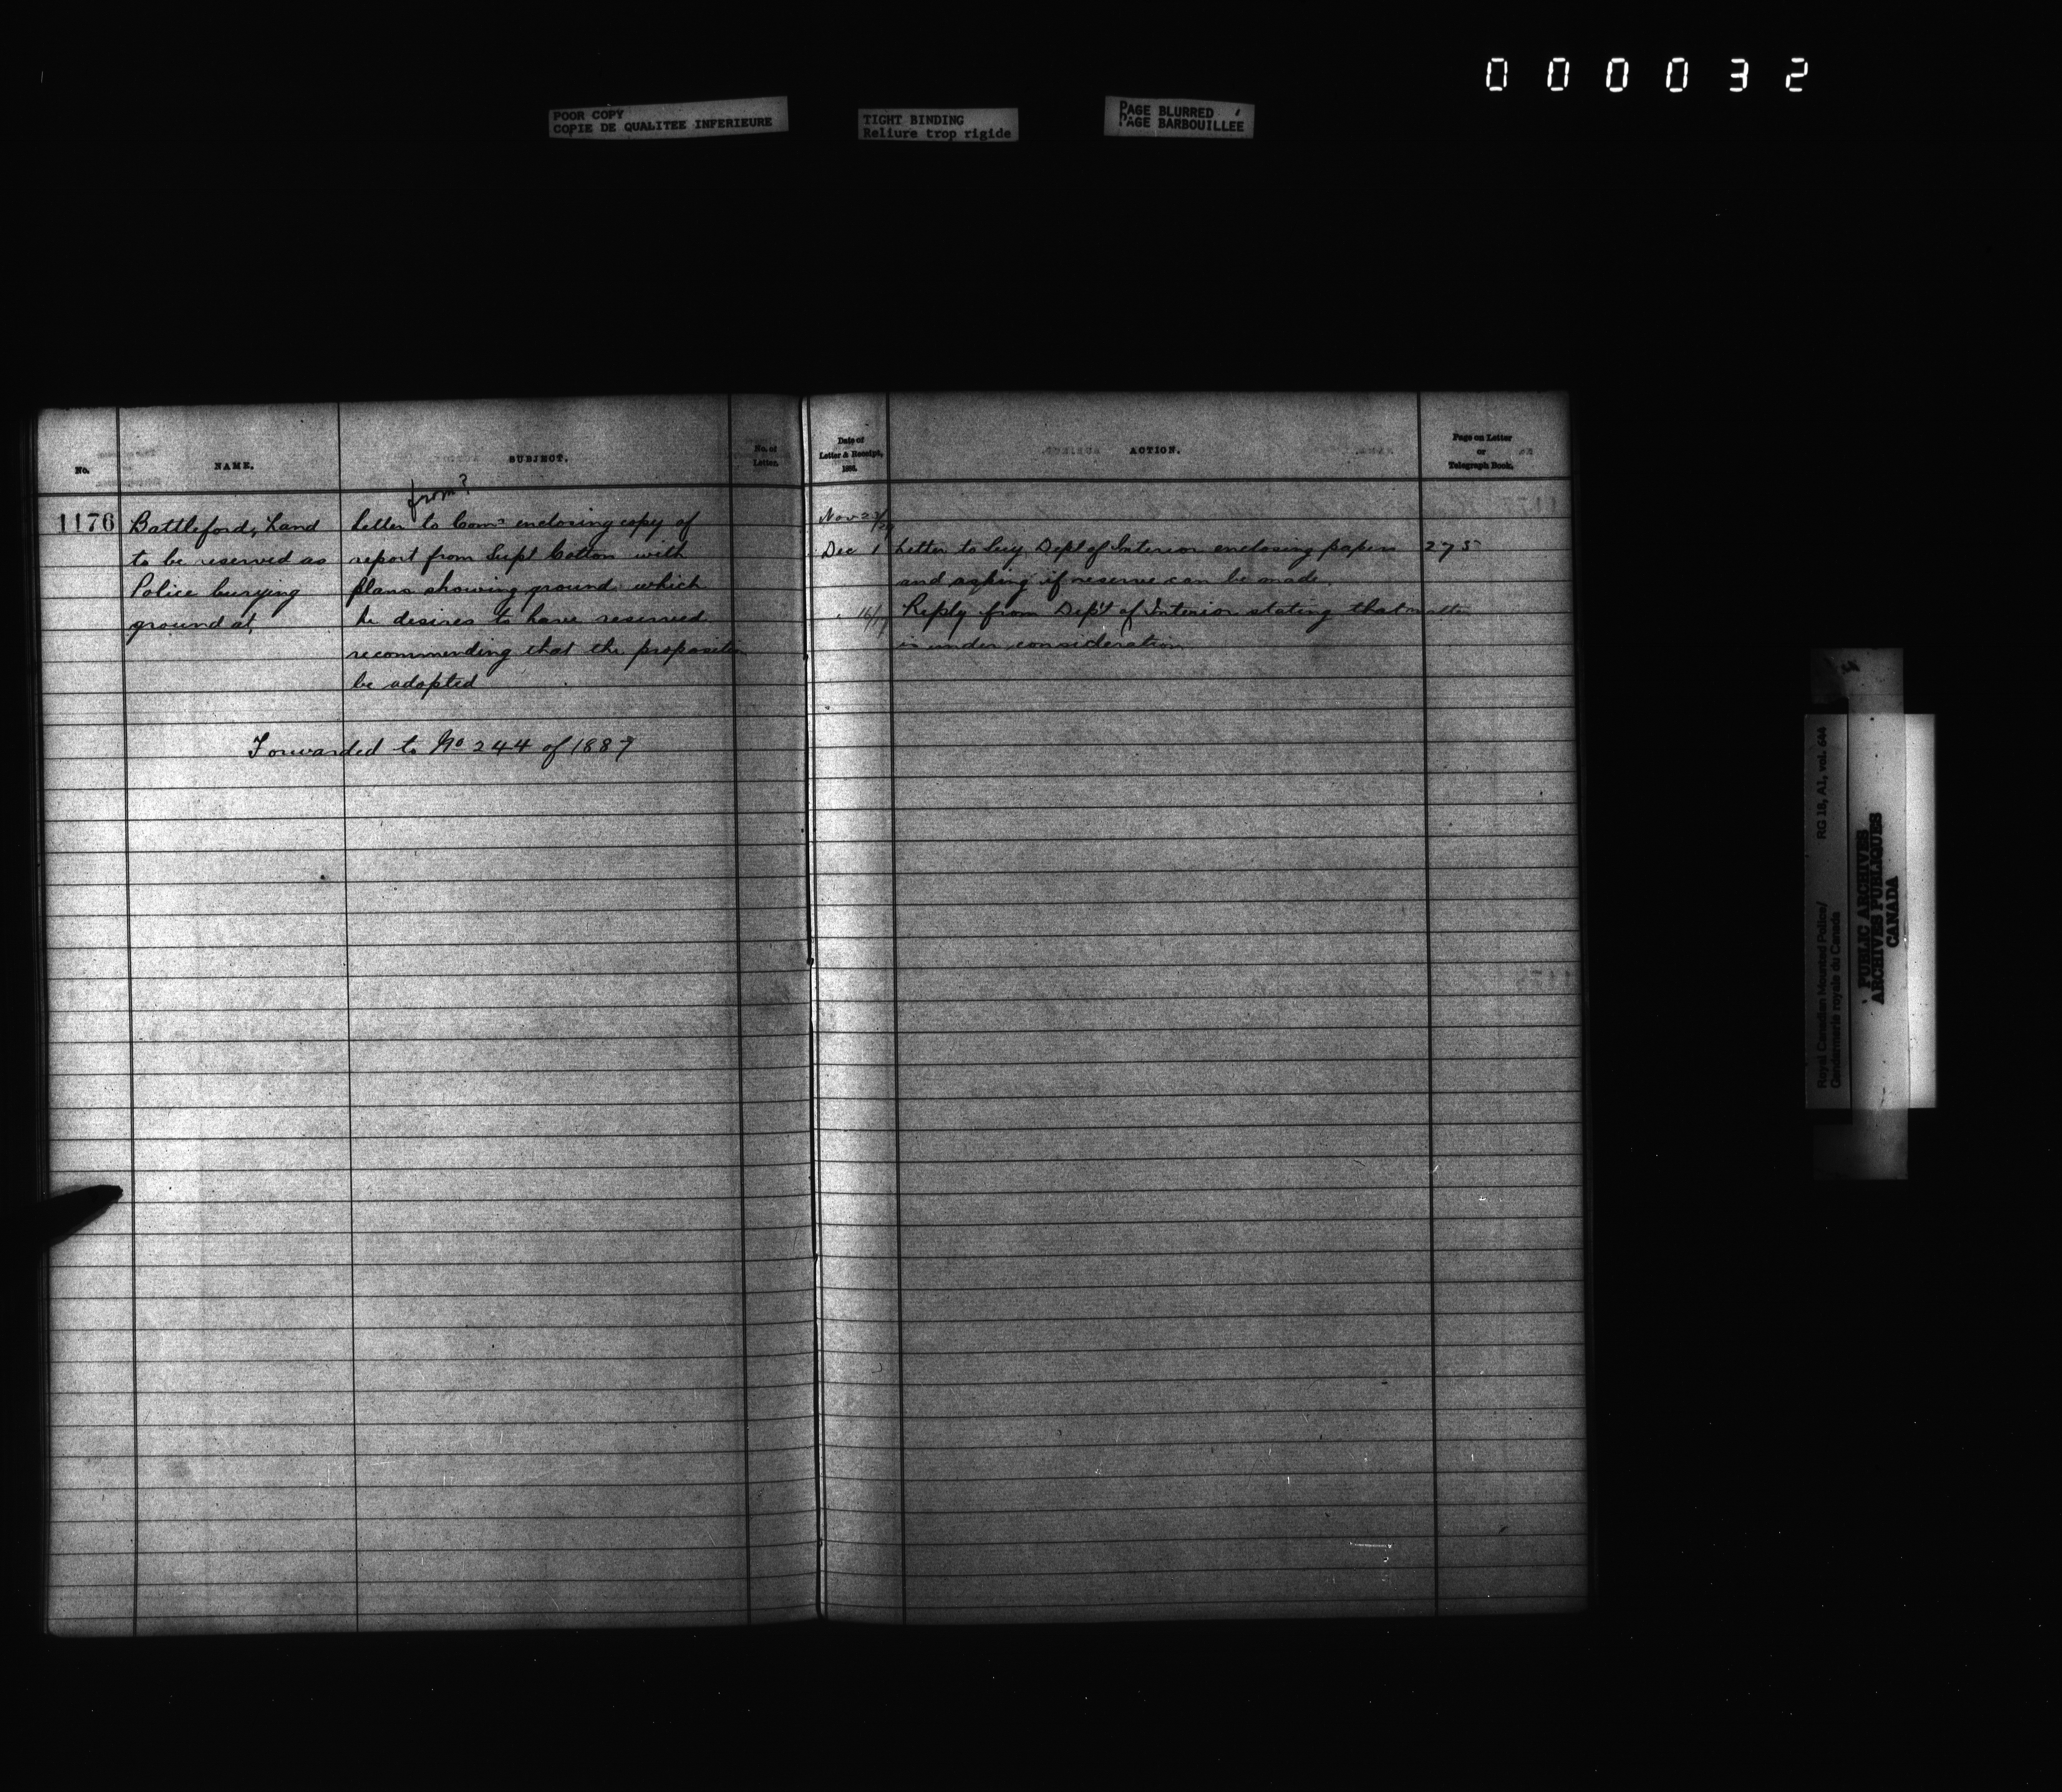 000032
POOR COPY
COPIE DE QUALITEE INFERIEURE
TIGHT BINDING
Reliure trop rigide
PAGE BLURRED
PAGE BARBOUILLEE
No.
NAME.
SUBJECT.
No. of
Letter.
from?
1176
Battleford, Land
to be reserved as
Police burying
ground at,
Letter to Comr enclosing copy of
report from Supt Cotton with
plans showing ground which
he desires to have reserved
recommending that the proposition
be adopted
Forwarded to No 244 of 1889
Date of
Letter & Receipt,
1888.
ACTION.
Page on Letter
or
Telegraph Book.
Nov 23/29
Dec 1 Letter to Secy Dept of Interior enclosing papers 275
and asking if reserve can be made.
" 16/17 Reply from Dep't of Interior stating that matter
is under consideration
Royal Canadian Mounted Police/
Gendarmerie royale du Canada
RG 18, A1, vol. 644
PUBLIC ARCHIVES
ARCHIVES PUBLIQUES
CANADA